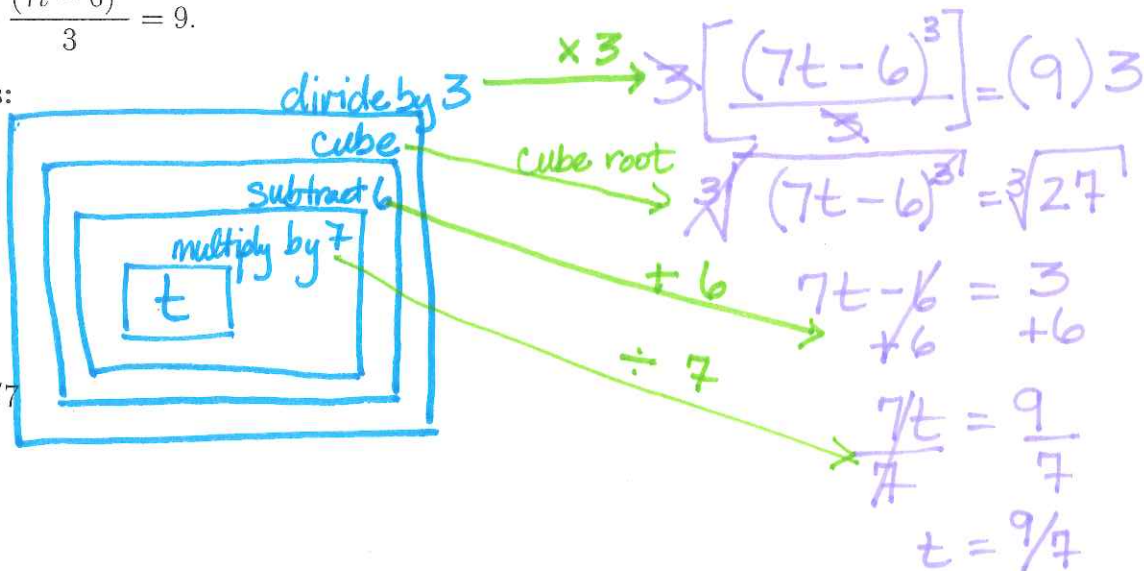 (7t − 6)³ / 3 = 9.
s:
divide by 3
cube
subtract 6
multiply by 7
t
/7
× 3
cube root
+ 6
÷ 7
3[(7t − 6)³ / 3] = (9) 3
³√(7t − 6)³ = ³√27
7t − 6 = 3
+6 +6
7t / 7 = 9 / 7
t = 9/7